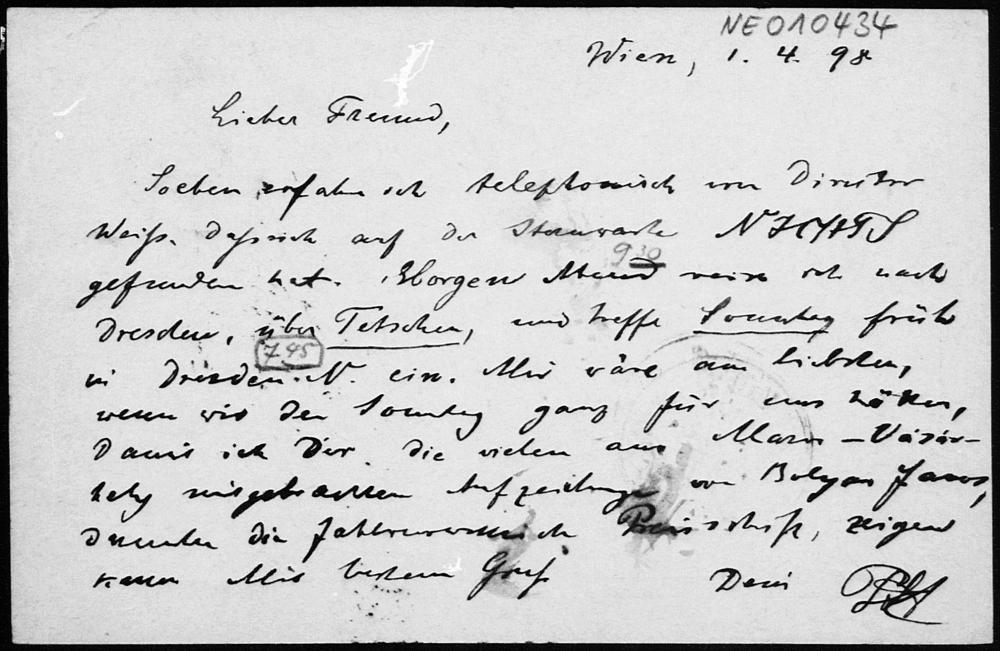 NE010434
Wien, 1. 4. 98
Lieber Freund,
Soeben erfahre ich telephonisch von Director
Weiß, daß sich auf der Sternwarte NICHTS
gefunden hat. Morgen Abend 9 30 reise ich nach
Dresden, über Tetschen, und treffe Sonntag früh
7 45
in Dresden-N. ein. Mir wäre am liebsten,
wenn wir den Sonntag ganz für uns hätten,
damit ich Dir die vielen aus Maros-Vásár-
hely mitgebrachten Aufzeichnungen von Bolyai János,
darunter die Preisschrift, zeigen
kann Mit bestem Gruß
Dein